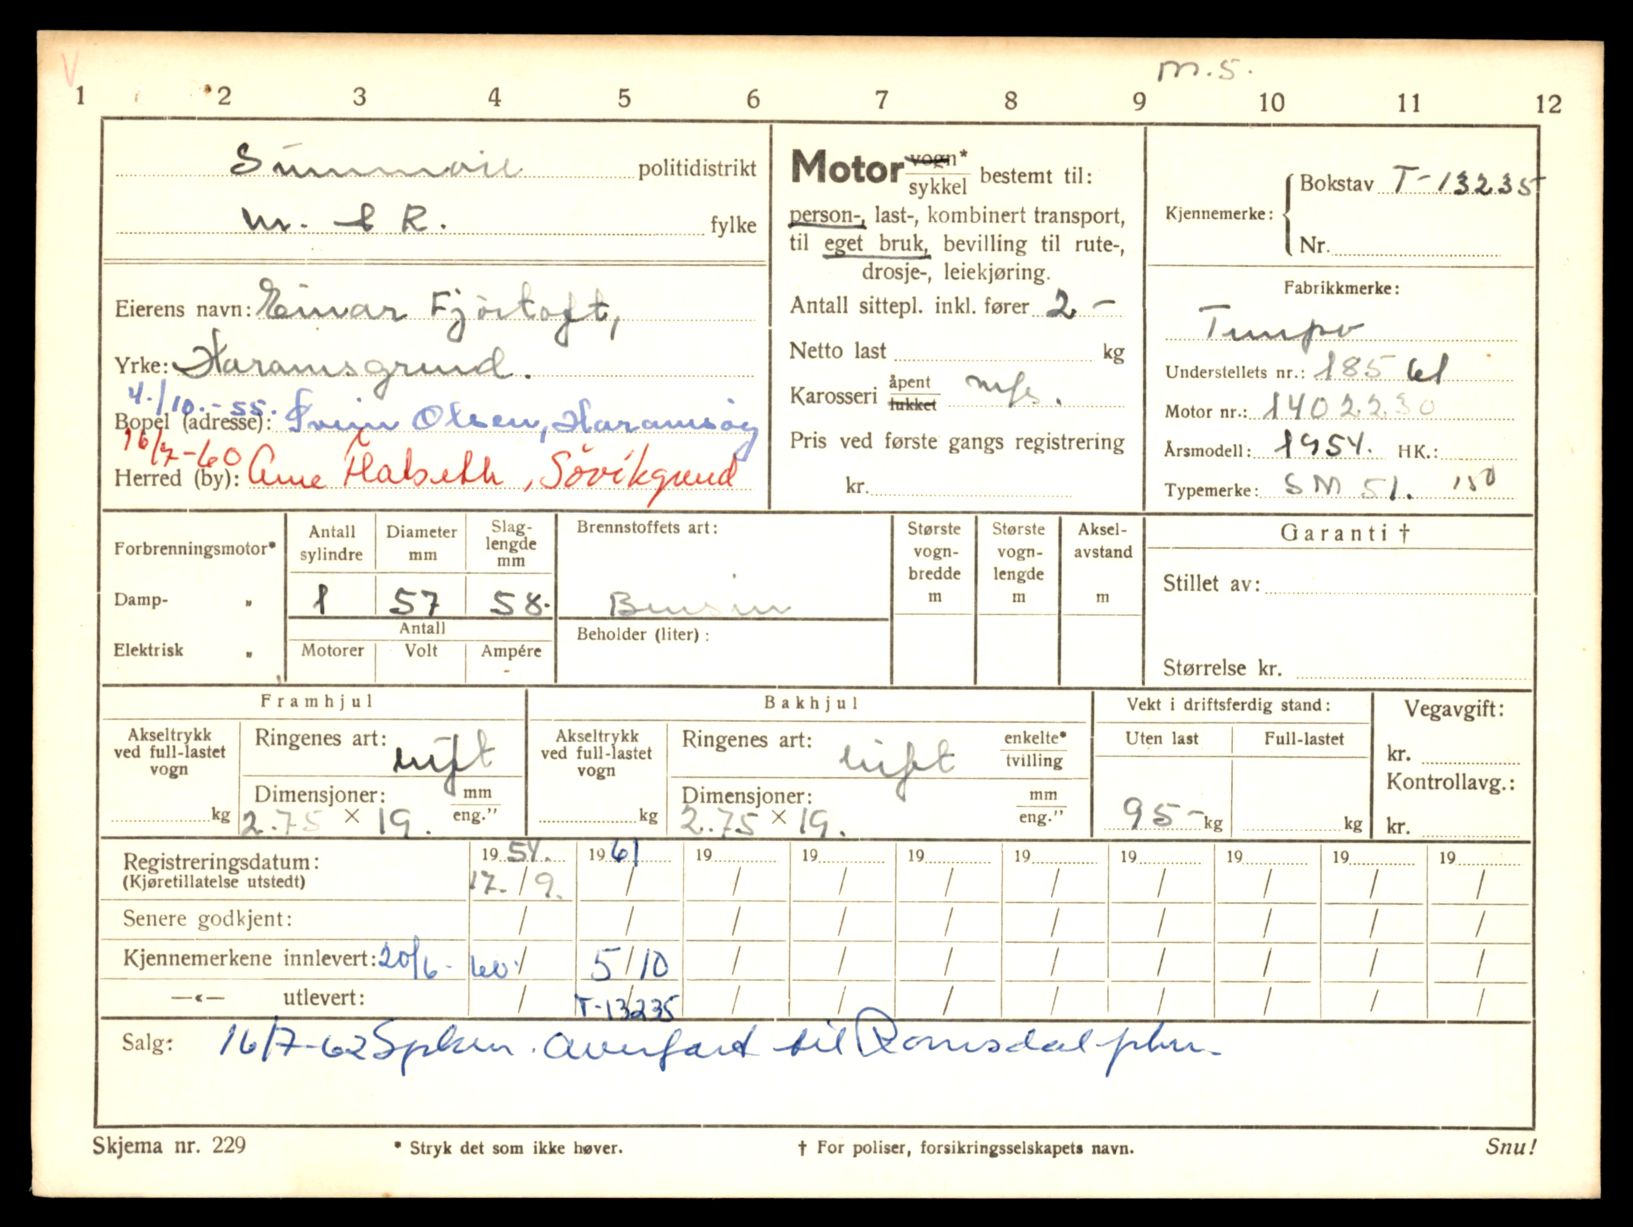 V
m.s.
1 2 3 4 5 6 7 8 9 10 11 12
Sunnmøre politidistrikt
M. & R. fylke
Eierens navn: Einar Fjørtoft,
Yrke: Haramsgrund.
4./10.-55.
Bopel (adresse): Svein Olsen, Haramsøy
16/7-60
Herred (by): Arne Halseth, Søvikgrend
Motor vogn*
sykkel bestemt til:
person-, last-, kombinert transport,
til eget bruk, bevilling til rute-,
drosje-, leiekjøring.
Antall sittepl. inkl. fører 2 -
Netto last kg
Karosseri åpent
lukket mfs.
Pris ved første gangs registrering
kr.
Kjennemerke: Bokstav T-13235
Nr.
Fabrikkmerke:
Tempo
Understellets nr.: 185 61
Motor nr.: 1402230
Årsmodell: 1954. HK.:
Typemerke: SM 51. 150
Forbrenningsmotor*
Damp- „
Elektrisk „
Antall sylindre
Diameter mm
Slag-lengde mm
1 57 58.
Antall
Motorer Volt Ampére
-
Brennstoffets art:
Bensin
Beholder (liter):
Største vogn-bredde m
Største vogn-lengde m
Aksel-avstand m
Garanti †
Stillet av:
Størrelse kr.
Framhjul
Akseltrykk ved full-lastet vogn
kg
Ringenes art: luft
Dimensjoner: mm
eng."
2.75 × 19.
Bakhjul
Akseltrykk ved full-lastet vogn
kg
Ringenes art: luft enkelte*
tvilling
Dimensjoner: mm
eng."
2.75 × 19.
Vekt i driftsferdig stand:
Uten last Full-lastet
95- kg kg
Vegavgift:
kr.
Kontrollavg.:
kr.
Registreringsdatum: 19 54. 19 61 19 19 19 19 19 19 19 19
(Kjøretillatelse utstedt) 17. / 9. / / / / / / / / /
Senere godkjent: / / / / / / / / / /
Kjennemerkene innlevert: 20/6- 60. / 5/10 / / / / / / / /
—«— utlevert: / T-13235 / / / / / / / /
Salg: 16/7-62 Spkm. Overført til Romsdal pkm.
Skjema nr. 229
* Stryk det som ikke høver.
† For poliser, forsikringsselskapets navn.
Snu!